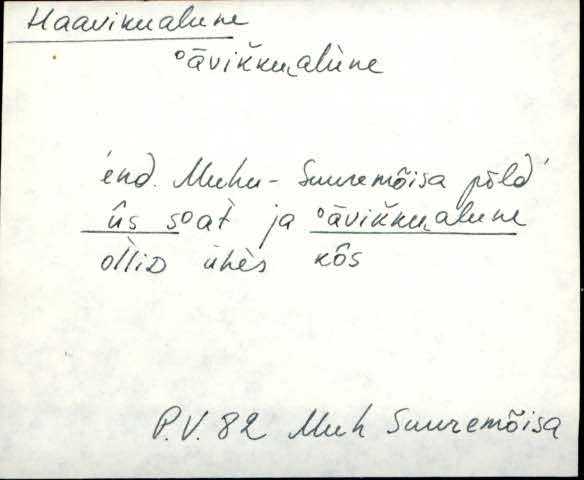 Haavikualune
°āviǩkuˬalùne
end. Muhu-Suuremõisa põld
ûs s°at̀ ja °āviǩkuˬalune
ollìD ühès kôs
P.V. 82 Muh Suuremõisa